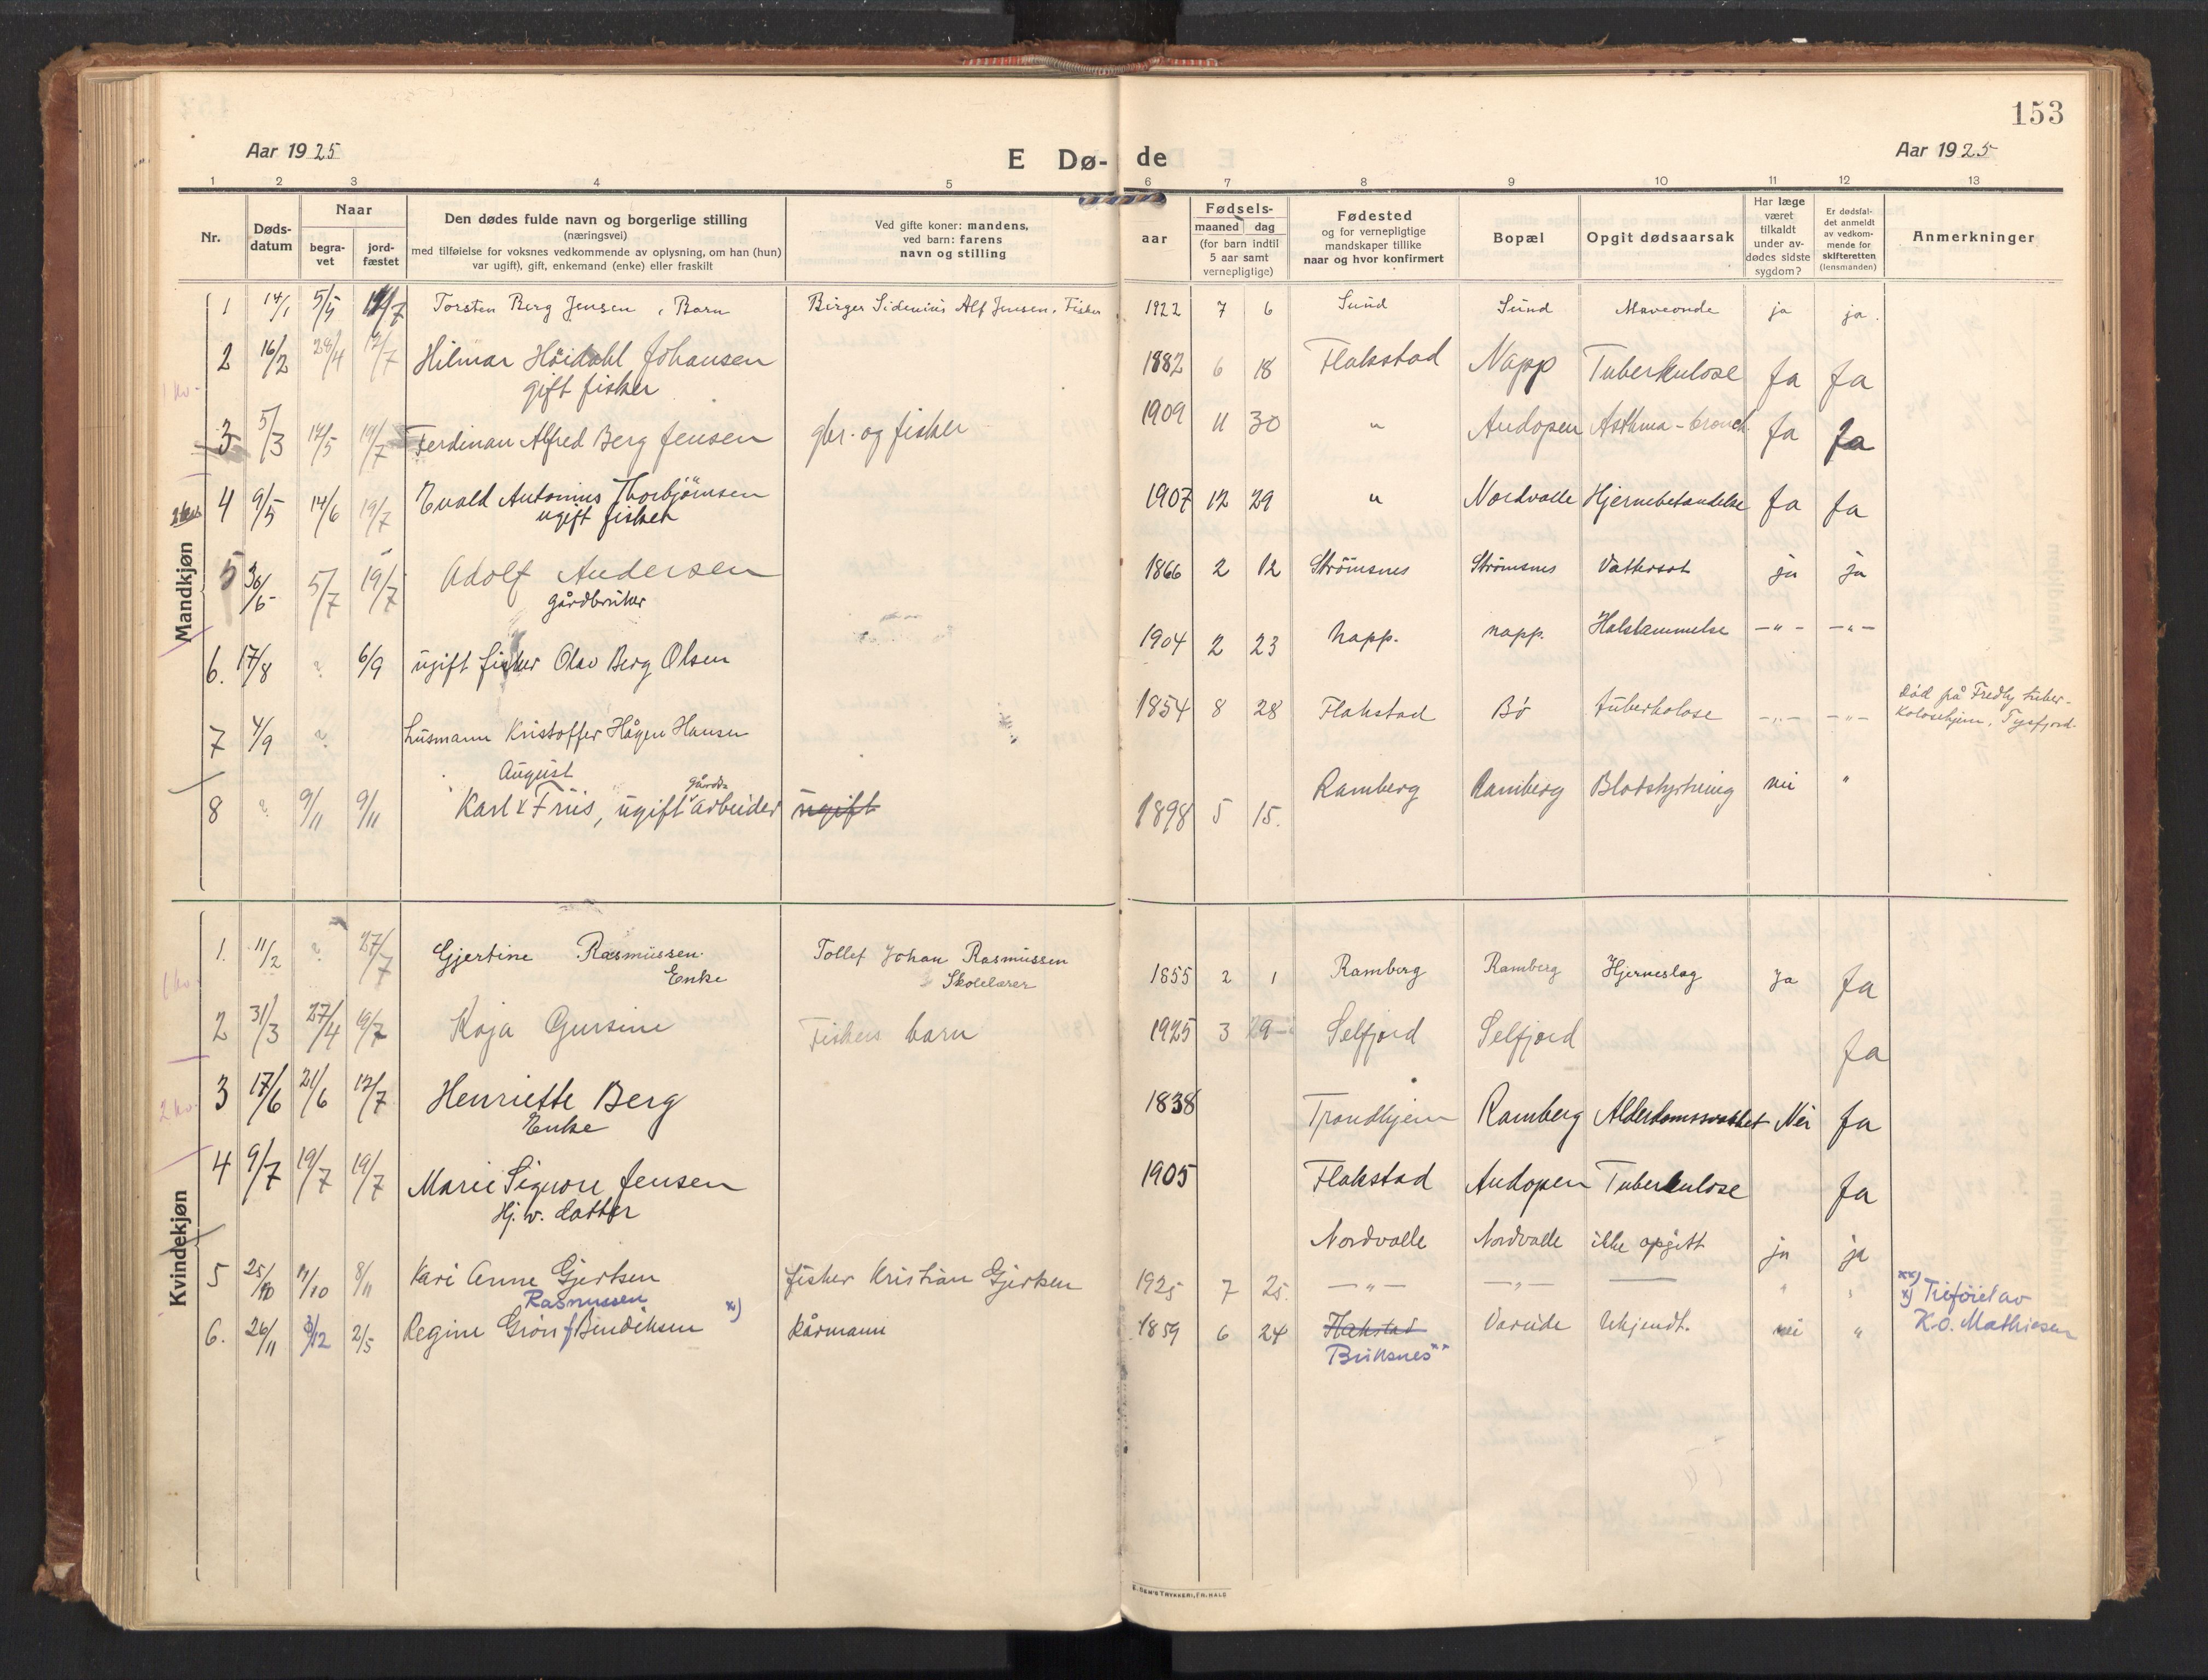 153
Aar 1925
E Dø- de
Aar 1925
1 2 3 4 5 6 7 8 9 10 11 12 13
Nr.
Døds-
datum
Naar
begra-
vet
jord-
fæstet
Den dødes fulde navn og borgerlige stilling
(næringsvei)
med tilføielse for voksnes vedkommende av oplysning, om han (hun)
var ugift), gift, enkemand (enke) eller fraskilt
Ved gifte koner: mandens,
ved barn: farens
navn og stilling
aar
Fødsels-
maaned dag
(for barn indtil
5 aar samt
vernepligtige)
Fødested
og for vernepligtige
mandskaper tillike
naar og hvor konfirmert
Bopæl
Opgit dødsaarsak
Har læge
været
tilkaldt
under av-
dødes sidste
sygdom?
Er dødsfal-
det anmeldt
av vedkom-
mende for
skifteretten
(lensmanden)
Anmerkninger
Mandkjøn
1 14/1 5/4 /7 Torsten Berg Jensen, Barn Birger Sidenius Alf Jensen, Fisker 1922 7 6 Sund Sund Maveonde ja ja.
2 16/2 28/4 12/7 Hilmar Höidahl Johansen 1882 6 18 Flakstad Napp Tuberkulose Ja Ja
gift fisker
3 5/3 14/5 19/7 Ferdinan Alfred Berg Jensen gbr. og fisker 1909 11 30 " Andopen Asthma - bronch. Ja Ja
4 9/5 14/6 19/7 Evald Antonius Thorbjörnsen 1907 12 29 " Nordvalle Hjernebetændelse Ja Ja
ugift fisker
5 30/6 5/7 19/7 Adolf Andersen 1866 2 12 Strömsnes Strömsnes Vattersot ja ja
gårdbruker
6. 17/8 ? 6/9 ugift fisker Olav Berg Olsen 1904 2 23 Napp. napp. Halsbetammelse -"- -"-
7 4/9 ? husmann Kristoffer Hågen Hansen 1854 8 28 Flakstad Bö tuberkolose -"- -"- Död på Fredly tuber-
kolosehjem, Tysfjord.
August gårds
8 ? 9/11 9/11 Karl v Friis, ugift v arbeider ugift 1898 5 15. Ramberg Ramberg Blodstyrtning nei "
Kvindekjøn
1. 11/2 ? 27/7 Gjertine Rasmussen. Tollef Johan Rasmussen 1855 2 1 Ramberg Ramberg Hjerneslag Ja Ja
Enke Skolelærer
2 31/3 27/4 19/7 Kaja Gursine Fiskers barn 1925 3 29 Selfjord Selfjord Ja
3 17/6 21/6 12/7 Henriette Berg 1838 Trondhjem Ramberg Alderdomssvakhet Nei Ja
Enke
4 9/7 19/7 19/7 Marie Signore Jensen 1905 Flakstad Andopen Tuberkulose Ja
Hj. v. datter
Nordvalle Nordvalle ikke opgitt ja ja
5 25/10 /10 8/11 Kari Anne Gjertsen fisker Kristian Gjertsen 1925 7 25. -"- -"- — " "
Rasmussen xx)
6. 26/11 /12 2/5 Regine Grön f Bendiksen x) kårmann 1859 6 24 Flakstad Vareide Ukjendt. nei " x) Tilföiet av
Buksnes xx K.O. Mathiesen
E. SEM'S TRYKKERI, FR.HALD